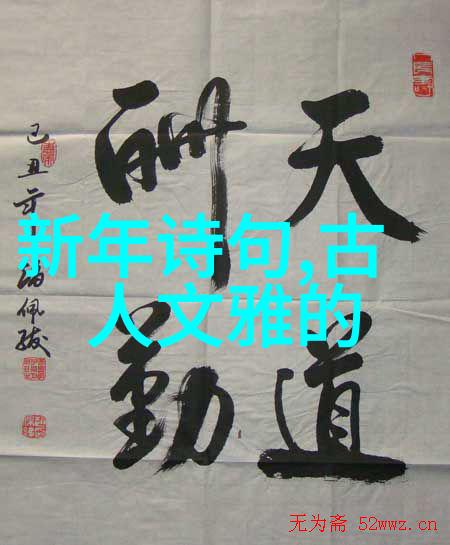 天道
酬勤
己丑
佩
新年诗句,古
人文雅的
无为斋 52wwz.cn